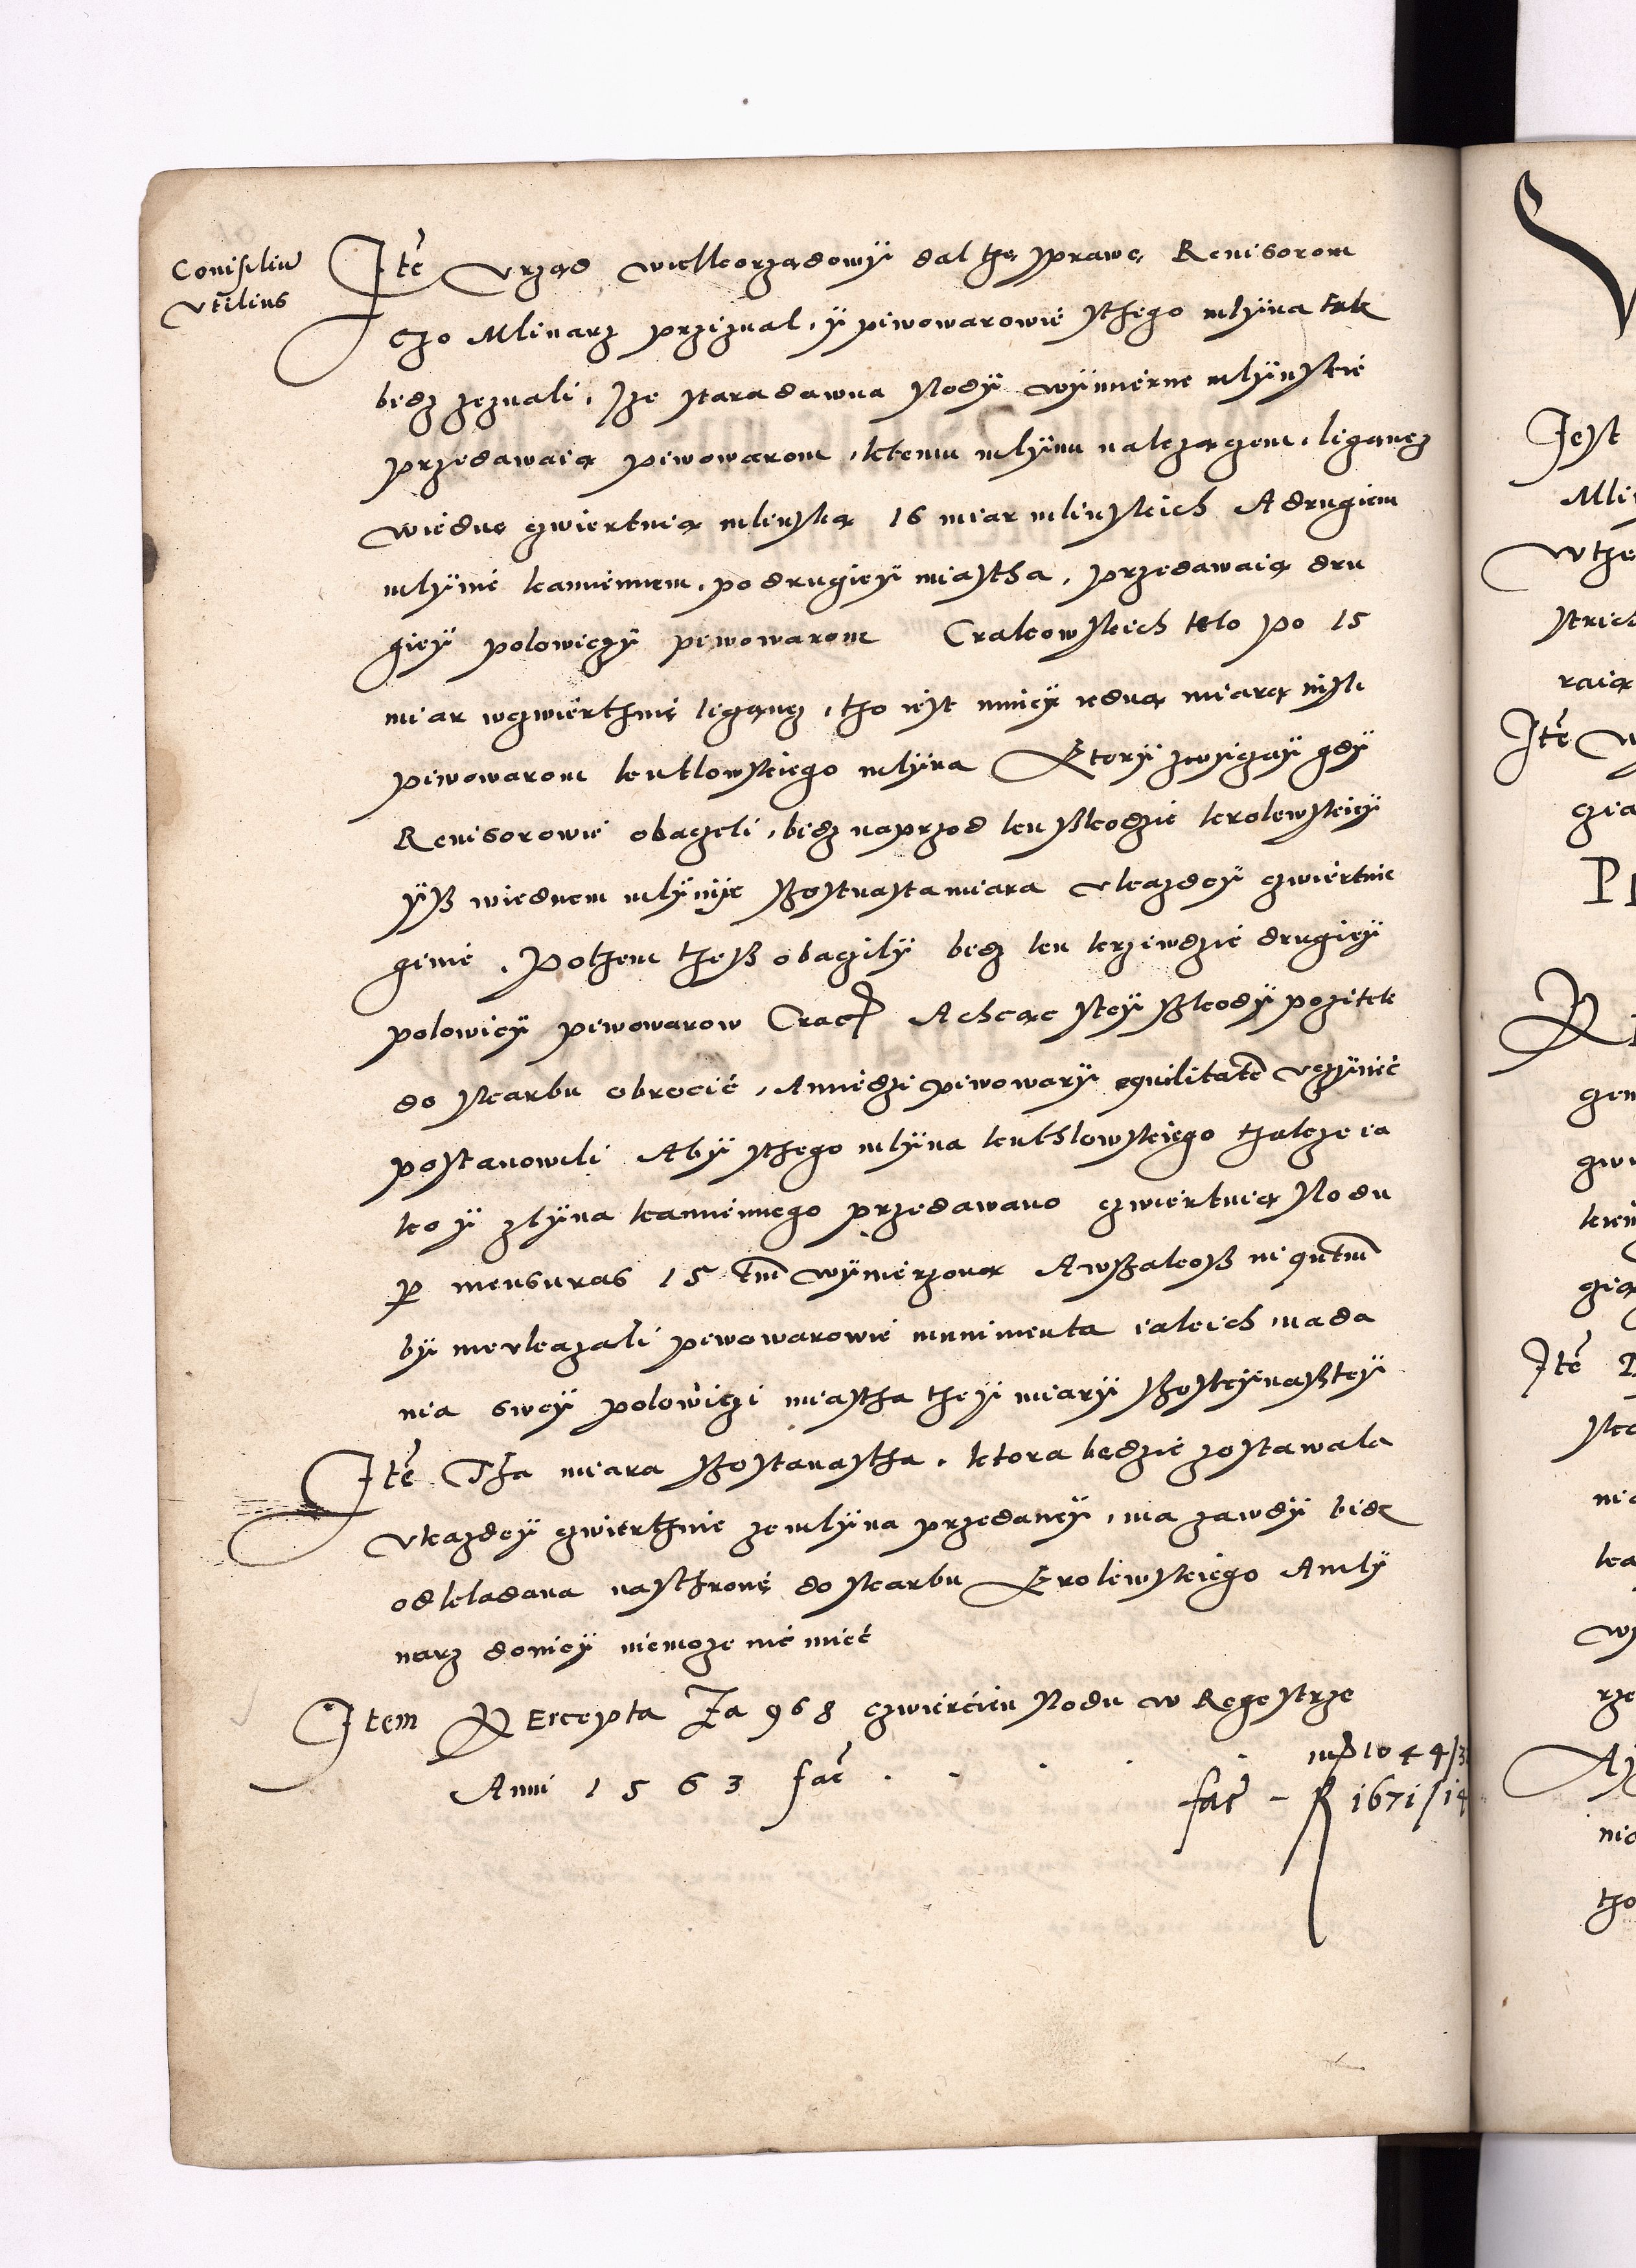 Consiliu
Vtilius
Ite Vrząd wielkorządowÿ dal thę sprawę Reuisorom
czo Mlinarz przÿznal, ÿ piwowarowie sthego mlÿna tak
bedz zeznali, Jze staradawna slodÿ wÿmierne mlÿnskie
przedawaią piwowarom, ktemu mlÿnu należączem, liczancz
wiedne czwiertnią mlinską 16 miar mlinskich A drugiem
mlÿnie kamiennem, po drugieÿ miastha, przedawaią dru
gieÿ polowiczÿ piwowarom Crakowskich tilo po 15
miar wczwierthnię liczancz, tho iest mnieÿ iedną miarą niszli
piwowarom kutlowskiego mlÿna Ktorÿ zwÿczaÿ gdÿ
Reuisorowie obaczeli, bidz naprzod ku szkodzie krolewskieÿ
ÿsz wiednem mlÿnÿe szostnasta miara vkazdeÿ czwiertnie
ginie, Pothem thesz obacżilÿ bedz ku krzÿwdzie drugieÿ
polowicÿ piwowarow Crac Achcąc steÿ szkodÿ pozitek
do skarbu obrocić, Amiedzi piwowarÿ equilitate vczÿnić
postanowili Abÿ sthego mlÿna kuthlowskiego thakze ia
ko ÿ zlÿna kamiennego przedawano czwiertnią slodu
p mensuras 15 tm wÿmierzoną Awszakosz niqutm
bÿ nievkazali piwowarowie munimenta iakich nada
nia sweÿ polowiczi miastha theÿ miarÿ szosteÿnasteÿ
Ite Tha miara szostanastha, ktora będzie zostawala
vkazdeÿ czwierthnie zemlÿna przedaneÿ, ma zawdÿ bidz
odkladana nasthronę do skarbu Krolewskiego Amlÿ
narz donieÿ niemoze nic mieć
Item PErcepta Za 968 czwiercien slodu w Regestrze
Anni 1563 fac . . . . mp 1044/3
fac – R 1671/14